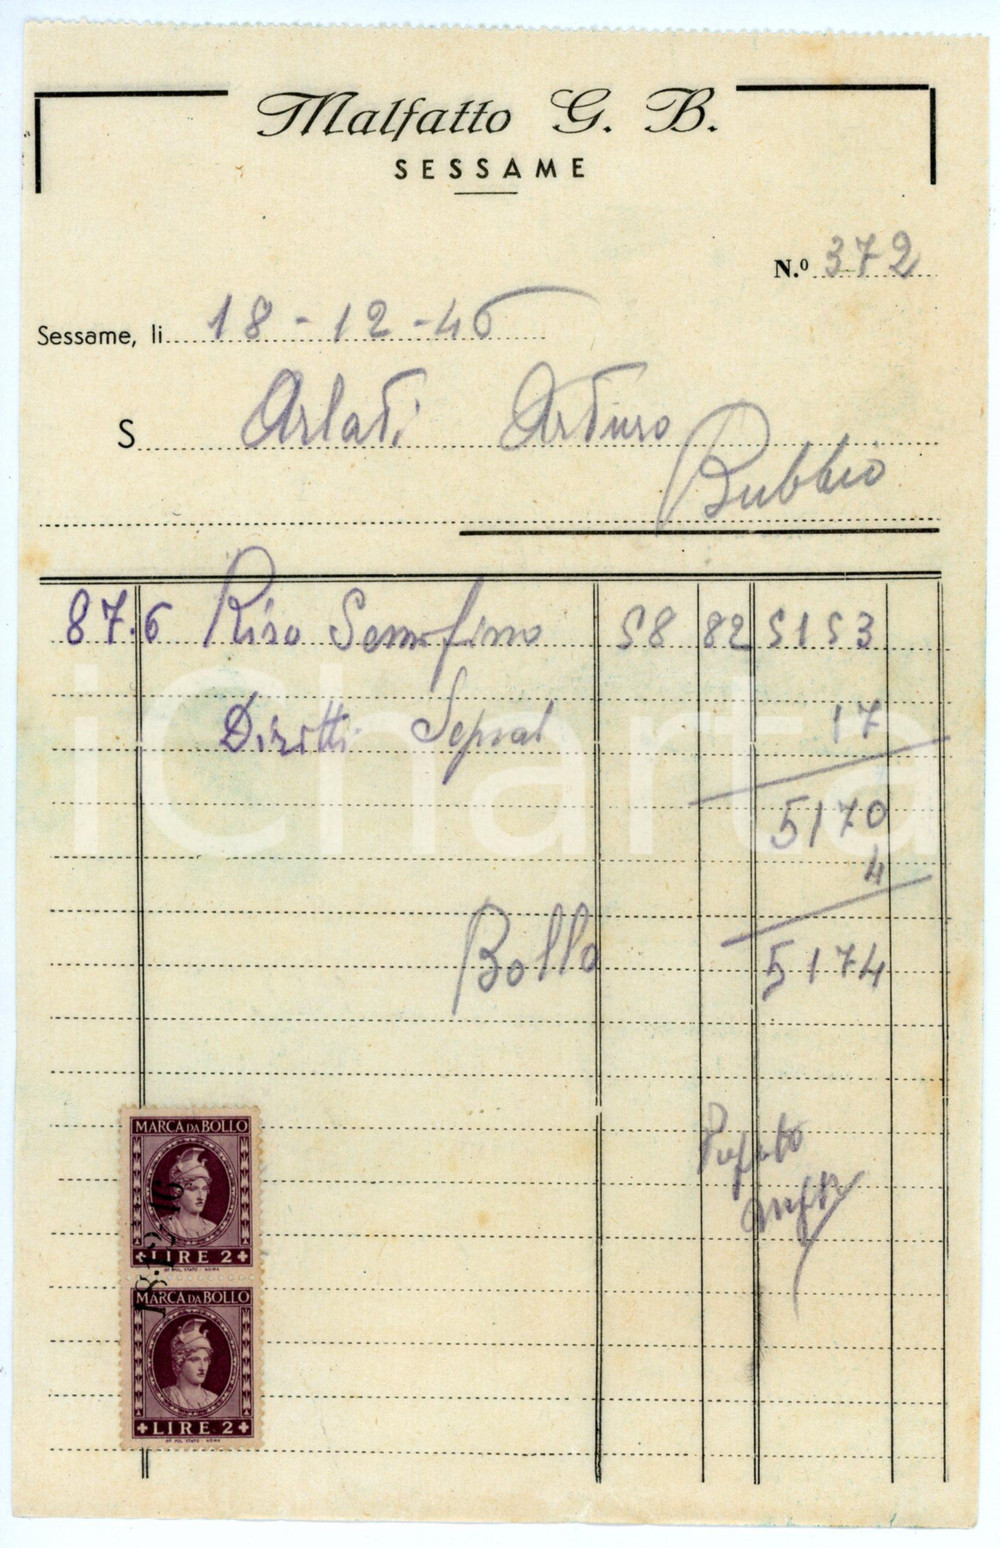 Malfatto G. B.
SESSAME
N.º 372
Sessame, li 18-12-46
S Arlati Arturo
Bubbio
87.6 Riso Semifino 58 82 5153
Diritti Sepral 17
5170
4
Bollo 5174
MARCA DA BOLLO
LIRE 2
MARCA DA BOLLO
LIRE 2
18.12.46
iCharta